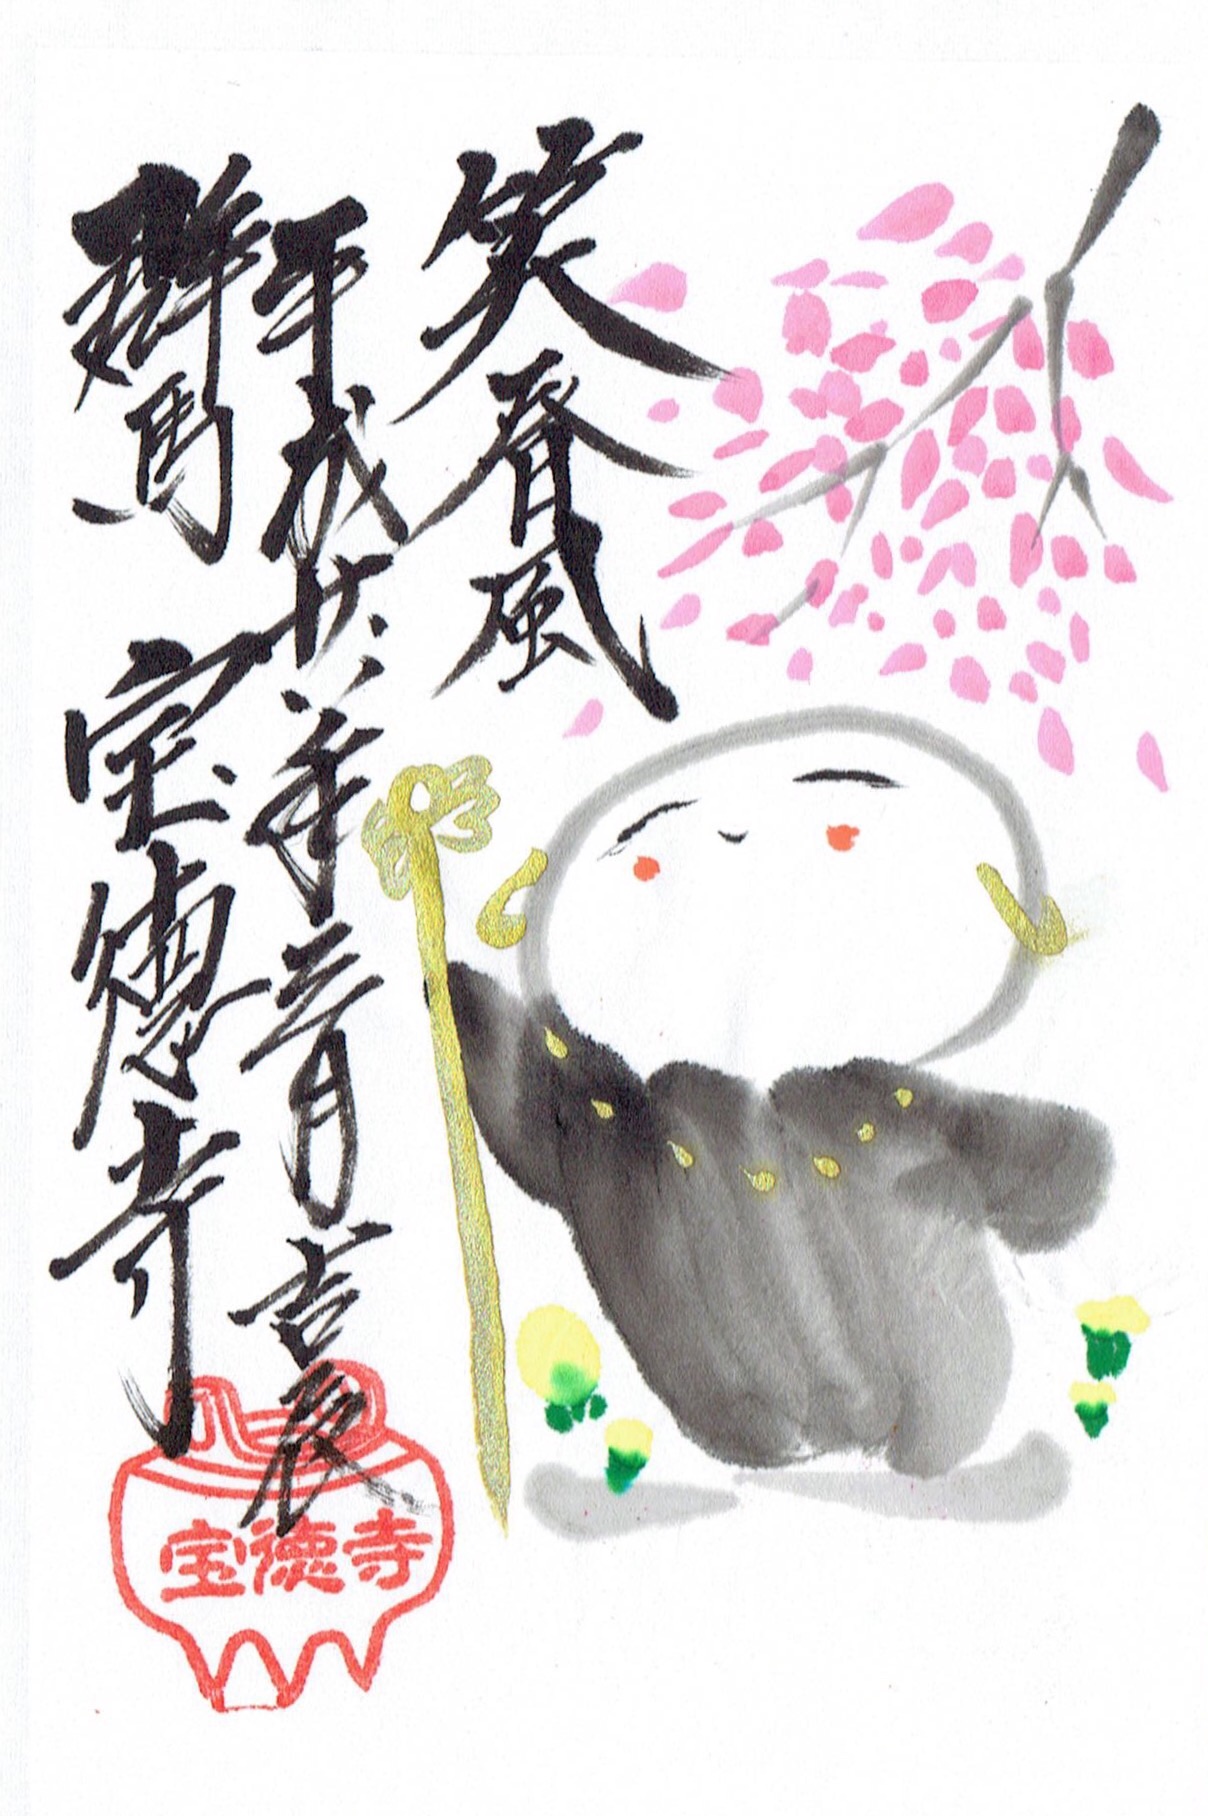 笑春風
平成廿八年三月吉辰
群馬 宝徳寺
宝徳寺